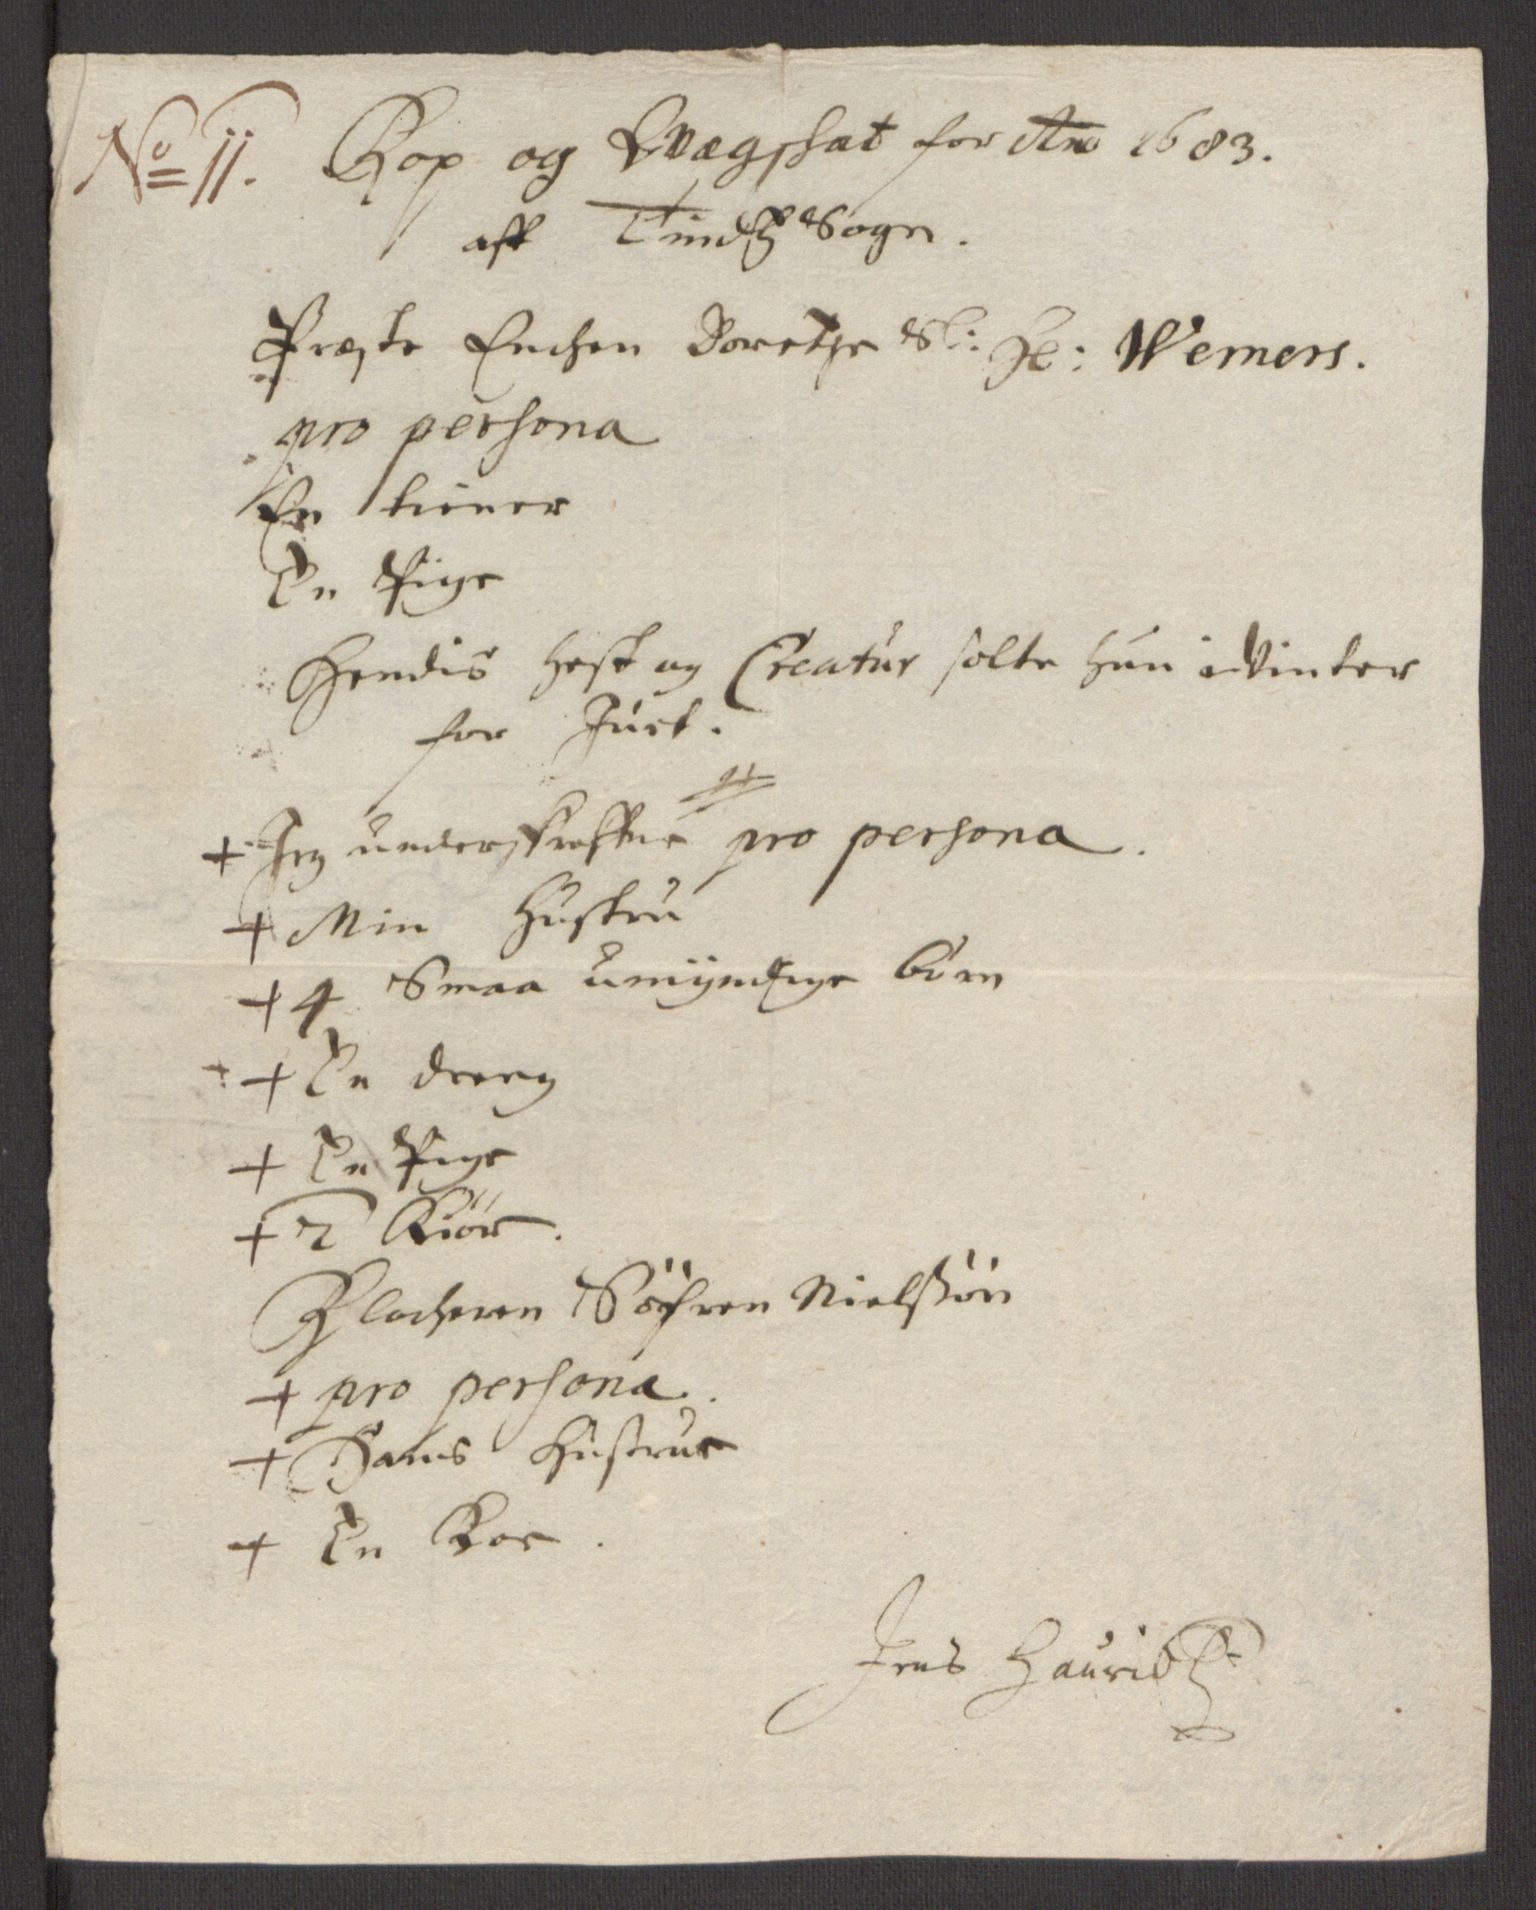 No 11. Kop og Qvægskat for Ano 1683.
aff Tindß Sogn.
Præste Enchen Dorethe Sl: Hr: Werners.
pro persona
En tiener
En Pige
Hendis hest og Creatur solte hun i Vinter
for Juel.
+ Jeg underskrefne pro persona.
+ Min Hustru
+ 4 Smaa umÿndige börn
+ En dreng
+ En Pige
+ 2 Kiör.
Klocheren Söfren Nielsßön
+ pro persona.
+ Hans Hustrue
+ En Koe.
Jens Lauridß